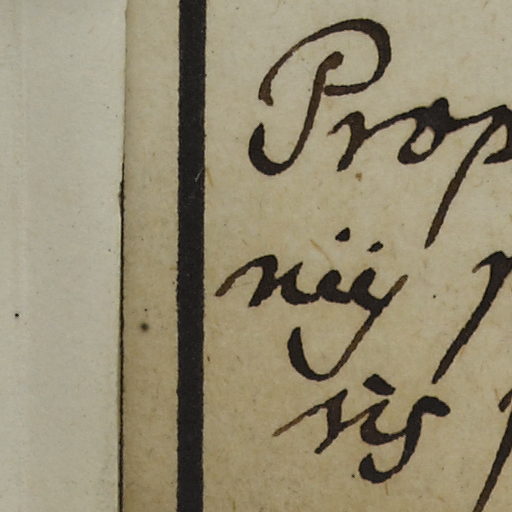 Prop
nij p
ris p